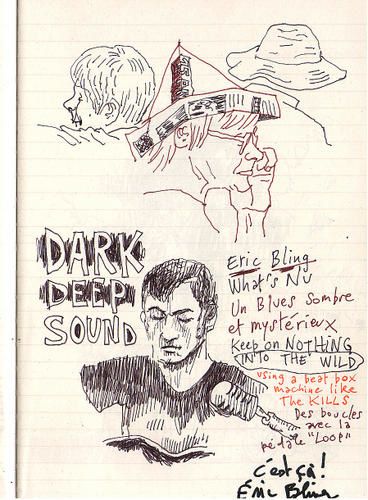 DARK
DEEP
SOUND
Eric Bling
What's Nu
Un Blues Sombre
et mystérieux
Keep on NOTHING
INTO THE WILD
using a beat box
machine like
The KILLS
Des boucles
avec la
pédale "LOOP"
c'est ça!
Éric Bling